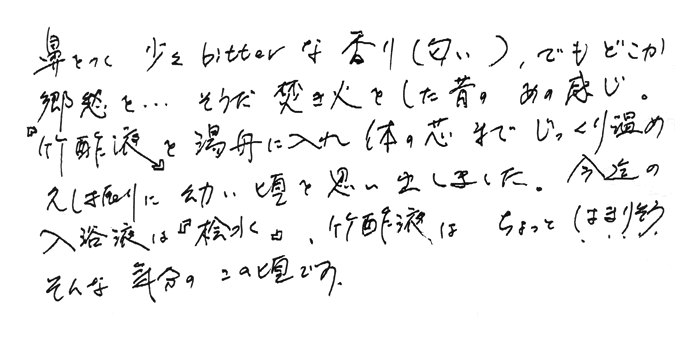 鼻をつく 少々bitterな香り(匂い)、でもどこか
郷愁を… そうだ 焚き火をした昔の あの感じ。
『竹酢液』を湯舟に入れ 体の芯まで じっくり温め
久し振りに 幼い頃を思い出しました。今迄の
入浴液は『桧水』、竹酢液は ちょっと はまりそう
そんな 気分の この頃です。